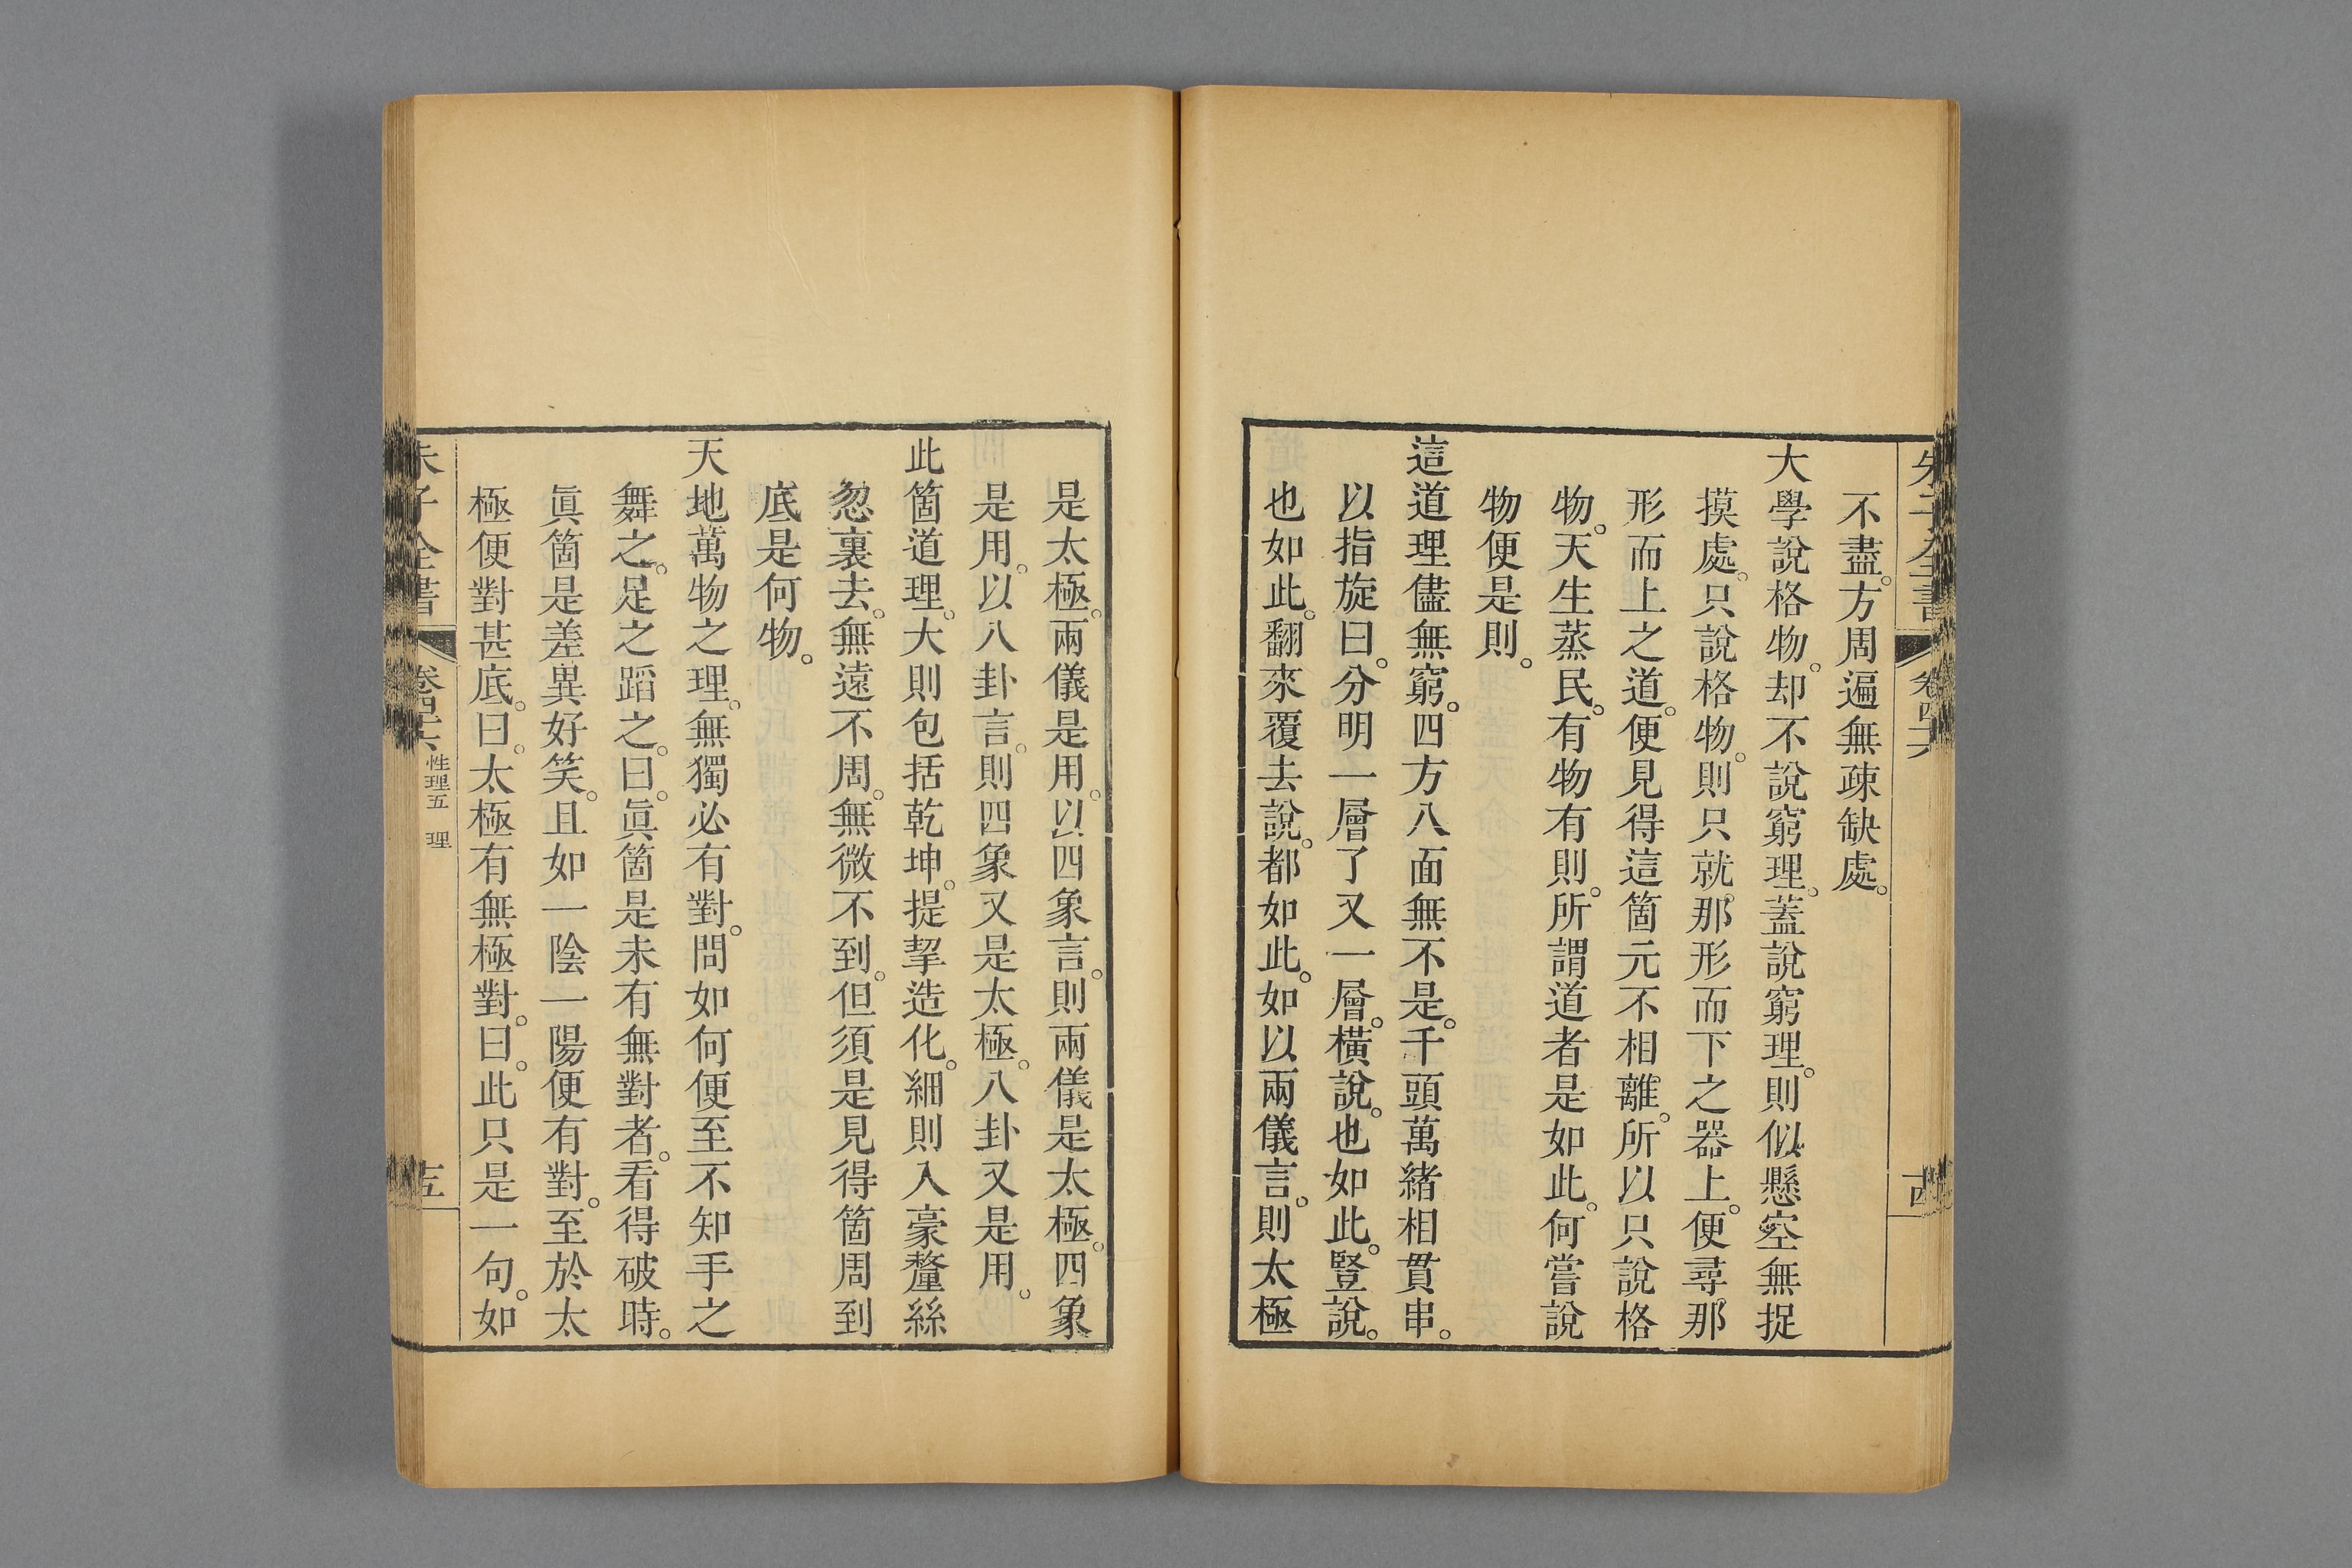 朱子全書 卷四六 十四
不盡。方周遍無疎缺處。
大學說格物。却不說窮理。蓋說窮理。則似懸空無捉
摸處。只說格物。則只就那形而下之器上。便尋那
形而上之道。便見得這箇元不相離。所以只說格
物。天生蒸民。有物有則。所謂道者是如此。何嘗說
物便是則。
這道理儘無窮。四方八面無不是。千頭萬緒相貫串。
以指旋曰。分明一層了又一層。橫說。也如此。豎說。
也如此。翻來覆去說。都如此。如以兩儀言。則太極
是太極。兩儀是用。以四象言。則兩儀是太極。四象
是用。以八卦言。則四象又是太極。八卦又是用。
此箇道理。大則包括乾坤。提挈造化。細則入豪釐絲
忽裏去。無遠不周。無微不到。但須是見得箇周到
底是何物。
天地萬物之理。無獨必有對。問如何便至不知手之
舞之。足之蹈之。曰。眞箇是未有無對者。看得破時。
眞箇是差異好笑。且如一陰一陽便有對。至於太
極便對甚底。曰。太極有無極對。曰。此只是一句。如
朱子全書 卷四六 性理五 理 十五